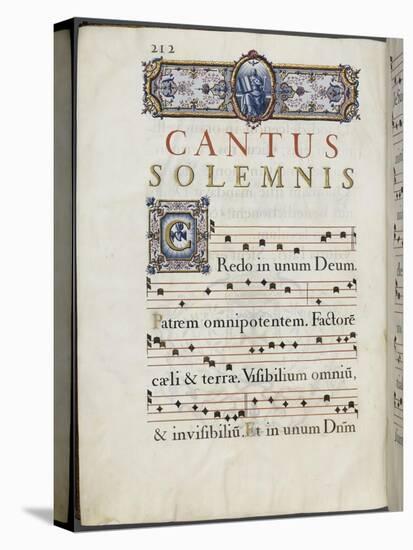 212
CANTUS
SOLEMNIS
CRedo in unum Deum.
Patrem omnipotentem. Factorē
cæli & terræ. Visibilium omniū,
& invisibiliū. Et in unum Dn̄m